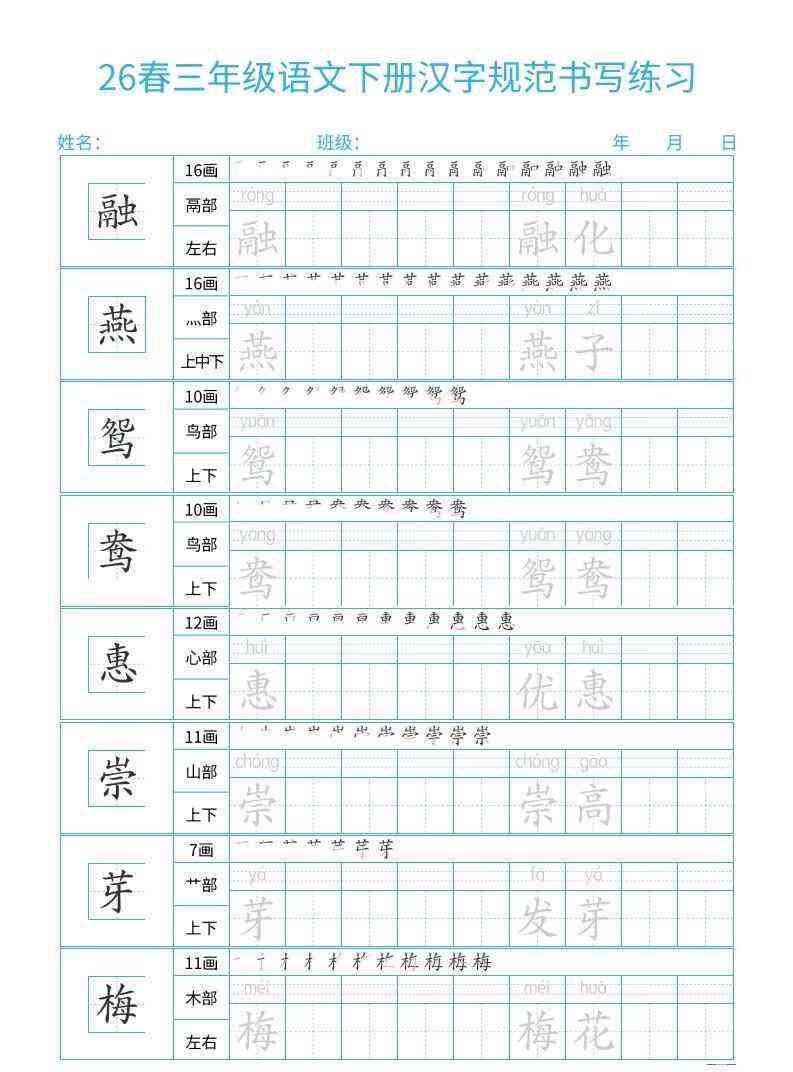 26春三年级语文下册汉字规范书写练习
姓名： 班级： 年 月 日
融 16画
鬲部 róng róng huà
左右 融 融 化
燕 16画
灬部 yàn yàn zi
上中下 燕 燕 子
鸳 10画
鸟部 yuān yuān yāng
上下 鸳 鸳 鸯
鸯 10画
鸟部 yāng yuān yāng
上下 鸯 鸳 鸯
惠 12画
心部 huì yōu huì
上下 惠 优 惠
崇 11画
山部 chóng chóng gāo
上下 崇 崇 高
芽 7画
艹部 yá fā yá
上下 芽 发 芽
梅 11画
木部 méi méi huā
左右 梅 梅 花